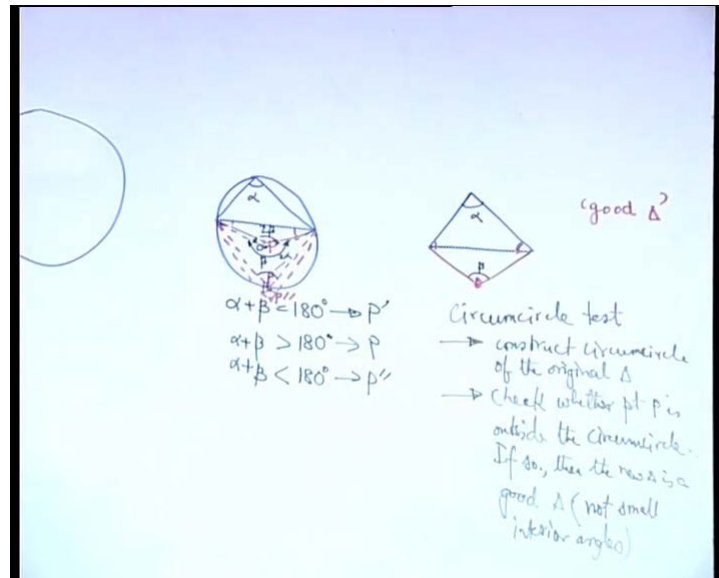 α
β
P
P''
α+β = 180° → P'
α+β > 180° → P
α+β < 180° → P''
α
β
'good Δ'
Circumcircle test
→ construct circumcircle
of the original Δ
→ Check whether pt P is
outside the circumcircle.
If so, then the new Δ is a
good Δ (not small
interior angles)